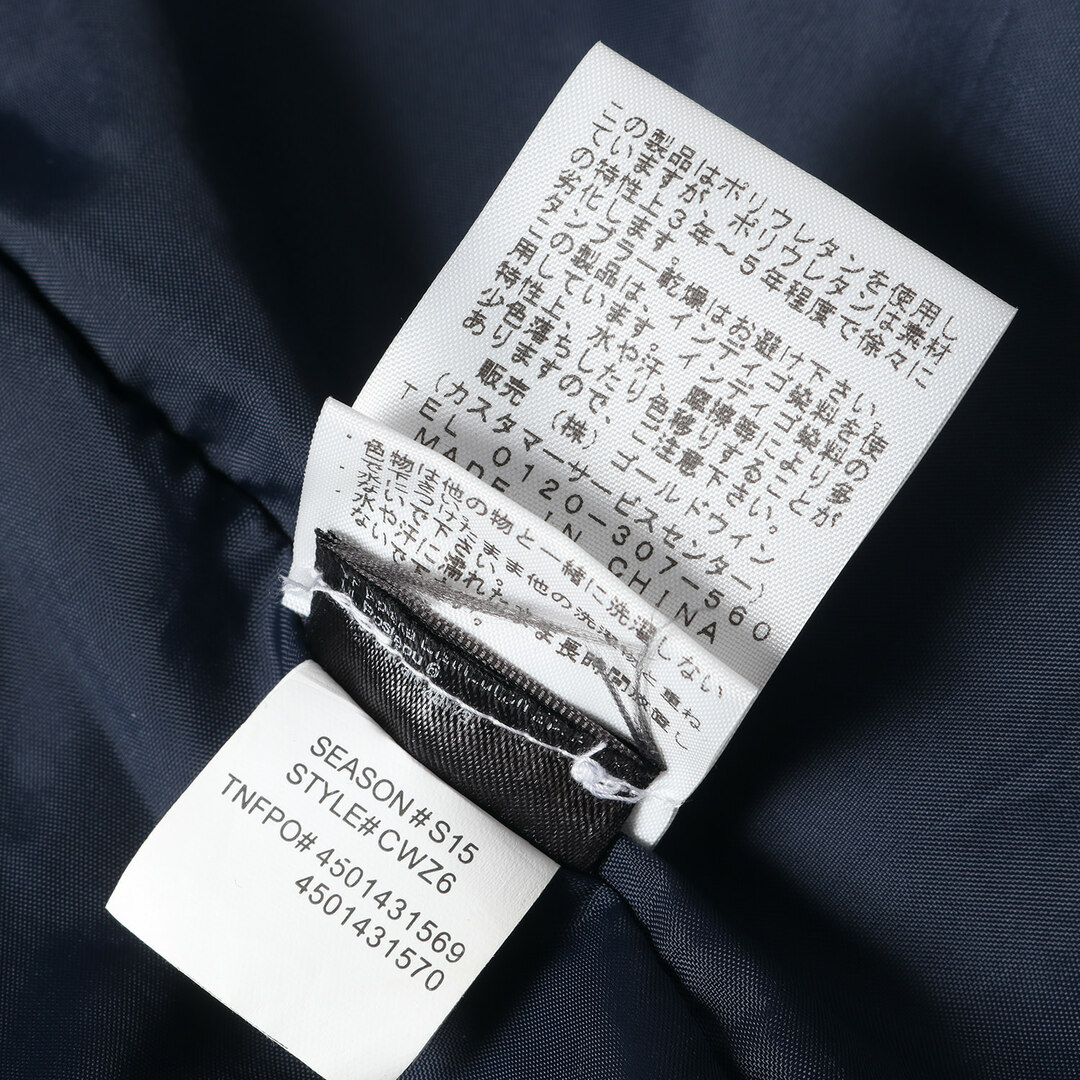 この製品はポリウレタンを使用し
ていますが、ポリウレタンは素材
の特性上3年～5年程度で徐々に
劣化します。
タンブラー乾燥はお避け下さい。
この製品は、インディゴ染料を使
用しています。インディゴ染料の
特性上、水や汗、摩擦等により多
少色落ちしたり、色移りすることが
ありますので、ご注意下さい。
販売 (株)ゴールドウイン
(カスタマーサービスセンター)
TEL 0120-307-560
MADE IN CHINA
色物は他の物と一緒に洗濯しない
で下さい。
水につけたまま他の洗濯物と重ね
水や汗に濡れたまま長時間放置し
ないで下
SEASON#S15
STYLE#CWZ6
TNFPO#4501431569
4501431570